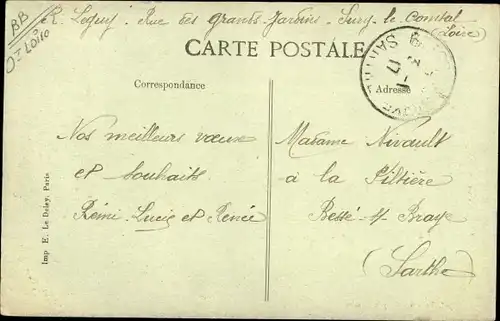 BB
R. Leguy, Rue des Grands Jardins - Sury-le-Comtal
(Loire)
O = Loire
CARTE POSTALE
Correspondance
Adresse
SARTHE
17
Nos meilleurs vœux
et souhaits
Rémi-Lucie et Renée
Madame Nivault
à la Piltière
Bessé-s/-Braye
(Sarthe)
Imp E. Le Deley, Paris